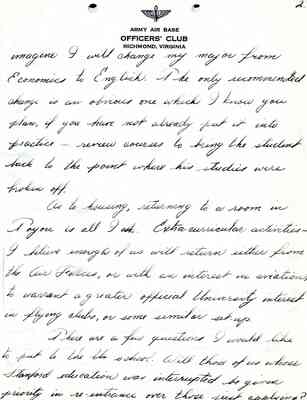 2.
ARMY AIR BASE
OFFICERS' CLUB
RICHMOND, VIRGINIA
imagine I will change my major from
Economics to English. The only recommended
change is an obvious one which I know you
plan, if you have not already put it into
practice — review courses to bring the student
back to the point where his studies were
broken off.
As to housing, returning to a room in
Toyon is all I ask. Extracurricular activities —
I believe enough of us will return either from
the Air Forces, or with an interest in aviation,
to warrant a greater official University interest
in flying clubs, or some similar set-up.
There are a few questions I would like
to put to the school. Will those of us whose
Stanford education was interrupted be given
priority in re-entrance over those just applying?